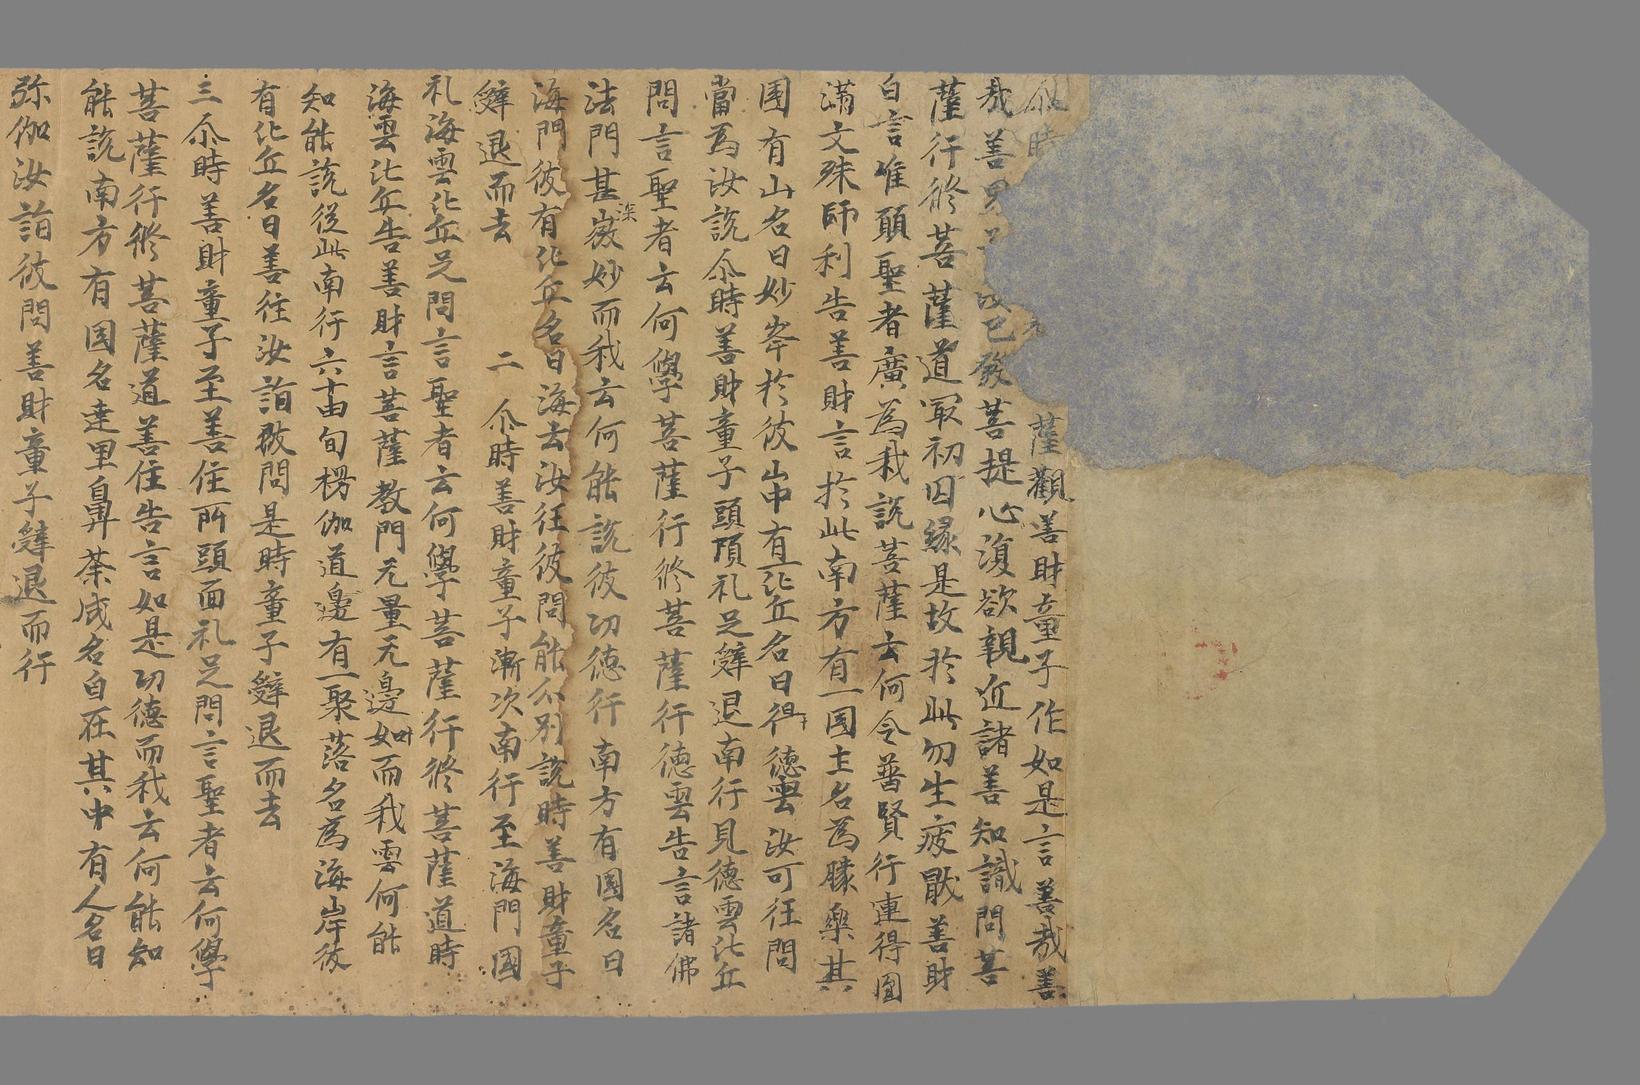 尒時 薩觀善財童子作如是言善哉善
哉善男 已發菩提心復欲親近諸善知識問菩
薩行修菩薩道冣初因緣是故於此勿生疲猒善財
白言唯願聖者廣為我說菩薩云何令普賢行連得圓
滿文殊師利告善財言扵此南方有一國土名為勝樂其
国有山名曰妙峯扵彼山中有一比丘名曰德雲汝可往問
當為汝說尒時善財童子頭頂礼足辤退南行見德雲比丘
問言聖者云何學菩薩行修菩薩行德雲告言諸佛
法門甚深微妙而我云何能說彼功德行南方有國名曰
海門彼有比丘名曰海云汝往彼問能分別說時善財童子
辤退而去 二 尒時善財童子漸次南行至海門國
礼海雲比丘足問言聖者云何學菩薩行修菩薩道時
海雲比丘告善財言菩薩教門无量无邊如而我雲何能
知能說從此南行六十由旬楞伽道邊有一聚落名為海岸彼
有比丘名曰善住汝詣啟問是時童子辤退而去
三 尒時善財童子至善住所頭面礼足問言聖者云何學
菩薩行修菩薩道善住告言如是功德而我云何能知
能說南方有国名達里鼻荼咸名自在其中有人名曰
弥伽汝詣彼問善財童子辤退而行